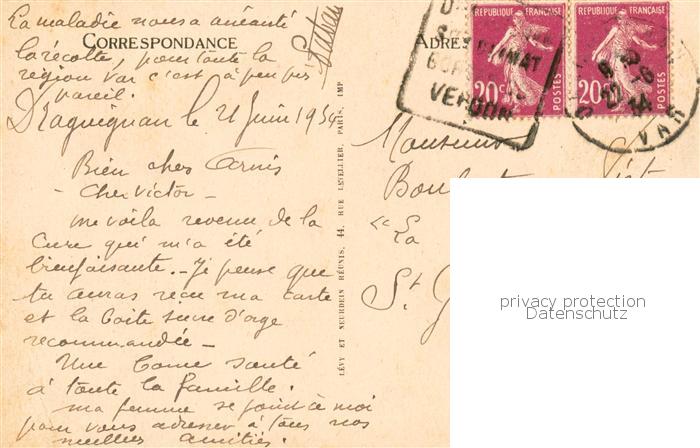 La maladie nous a anéanti
la récolte, pour toute la
région Var c'est à peu près
pareil.
CORRESPONDANCE
Draguignan le 21 Juin 1934
Bien chers Amis
- Cher Victor -
me voila revenu de la
Cure qui m'a été
bienfaisante. - Je pense que
tu auras reçu ma carte
et la boite
recommandée -
Une bonne santé
à toute la famille.
ma femme se joint à moi
pour vous adresser à tous nos
meilleures amitiés.
LÉVY ET NEURDEIN RÉUNIS, 44, RUE LETELLIER, PARIS, IMP
ADRES
REPUBLIQUE FRANÇAISE
20c
POSTES
REPUBLIQUE FRANÇAISE
20c
POSTES
VERDON
21-6
34
VAR
Monsieur
"La
St
privacy protection
Datenschutz